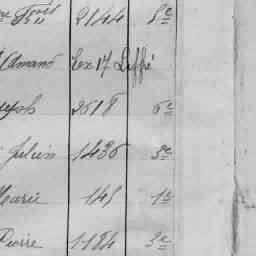 2144 8e
Amand Lex 17 Liffré
Joseph 2518 6e
Julien 1436 8e
Marie 148 1e
Pierre 1184 3e